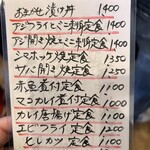 おまかせ漬け丼 1400
アジフライとミニ刺身定食 1400
アジ開きとミニ刺身定食 1400
シマホッケ焼き定食 1350
サバ開き焼定食 1250
赤魚煮付定食 1100
マコカレイ煮付定食 1000
カレイ唐揚げ定食 1100
エビフライ定食 1200
ヒレカツ定食 1100